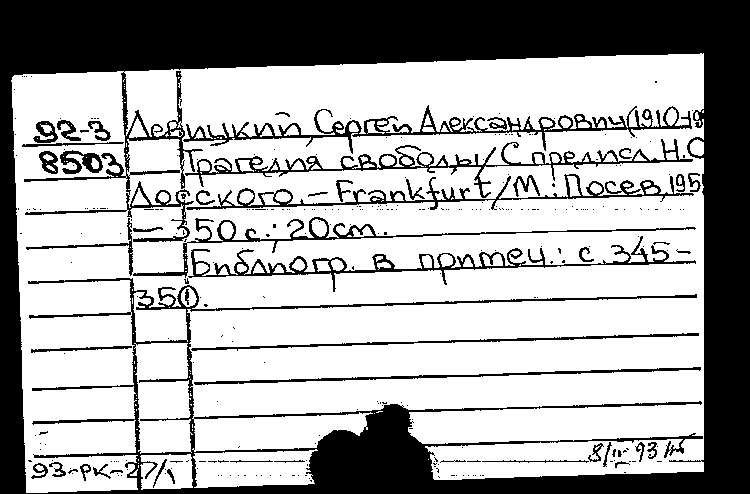 92-3 Левицкий, Сергей Александрович (1910-19
8503 Трагедия свободы / С предисл. Н.О
Лосского. – Frankfurt/M.: Посев, 195
– 350 с.; 20 cm.
Библиогр. в примеч.: с. 345-
350.
93-РК-27/1
8/IV 93